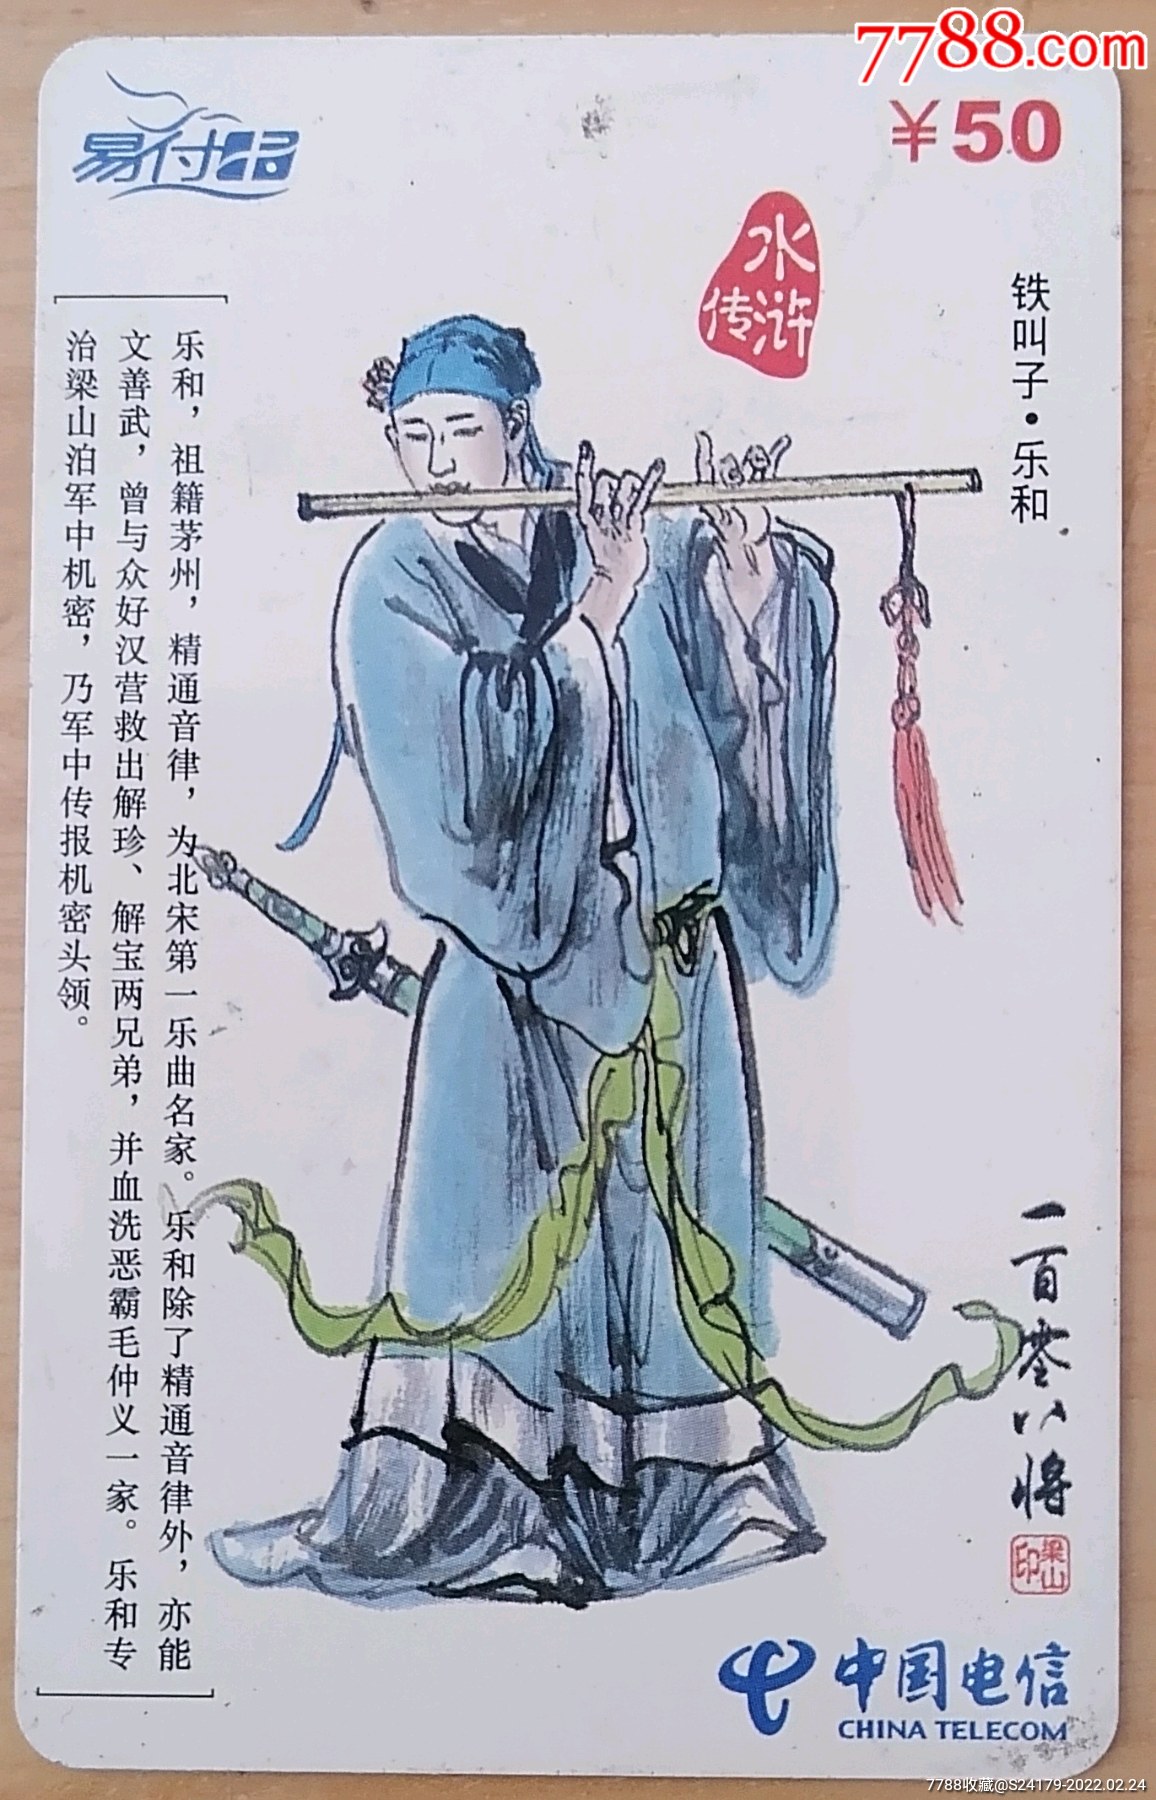 7788.com
易付
¥50
水浒传
铁叫子·乐和
乐和，祖籍茅州，精通音律，为北宋第一乐曲名家。乐和除了精通音律外，亦能
文善武，曾与众好汉营救出解珍、解宝两兄弟，并血洗恶霸毛仲义一家。乐和专
治梁山泊军中机密，乃军中传报机密头领。
一百零八将
梁山印
中国电信
CHINA TELECOM
7788收藏@S24179-2022.02.24